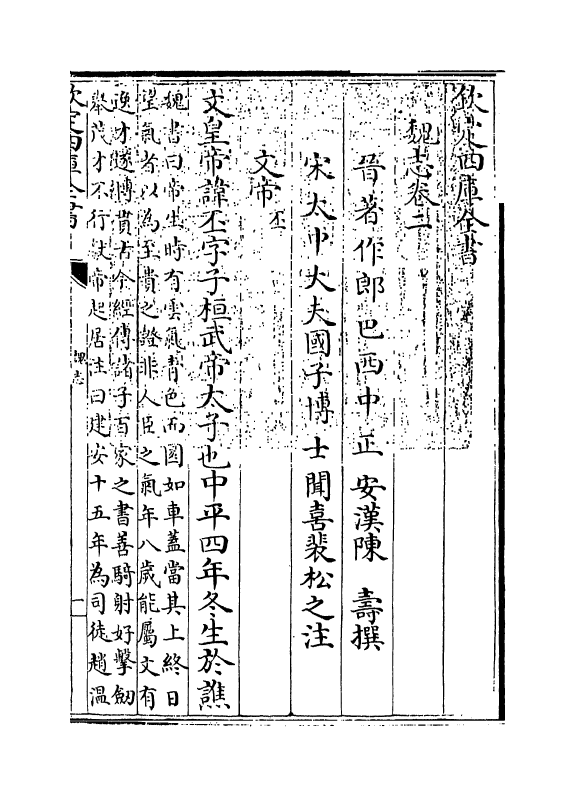 欽定四庫全書
魏志卷二
晉著作郎巴西中正安漢陳 壽撰
宋太中大夫國子博士聞喜裴松之注
文帝丕
文皇帝諱丕字子桓武帝太子也中平四年冬生於譙
魏書曰帝生時有雲氣青色而圜如車蓋當其上終日
望氣者以為至貴之證非人臣之氣年八歲能屬文有
逸才遂博貫古今經傳諸子百家之書善騎射好擊劔
舉茂才不行獻帝起居注曰建安十五年為司徒趙溫
欽定四庫全書
魏志
一